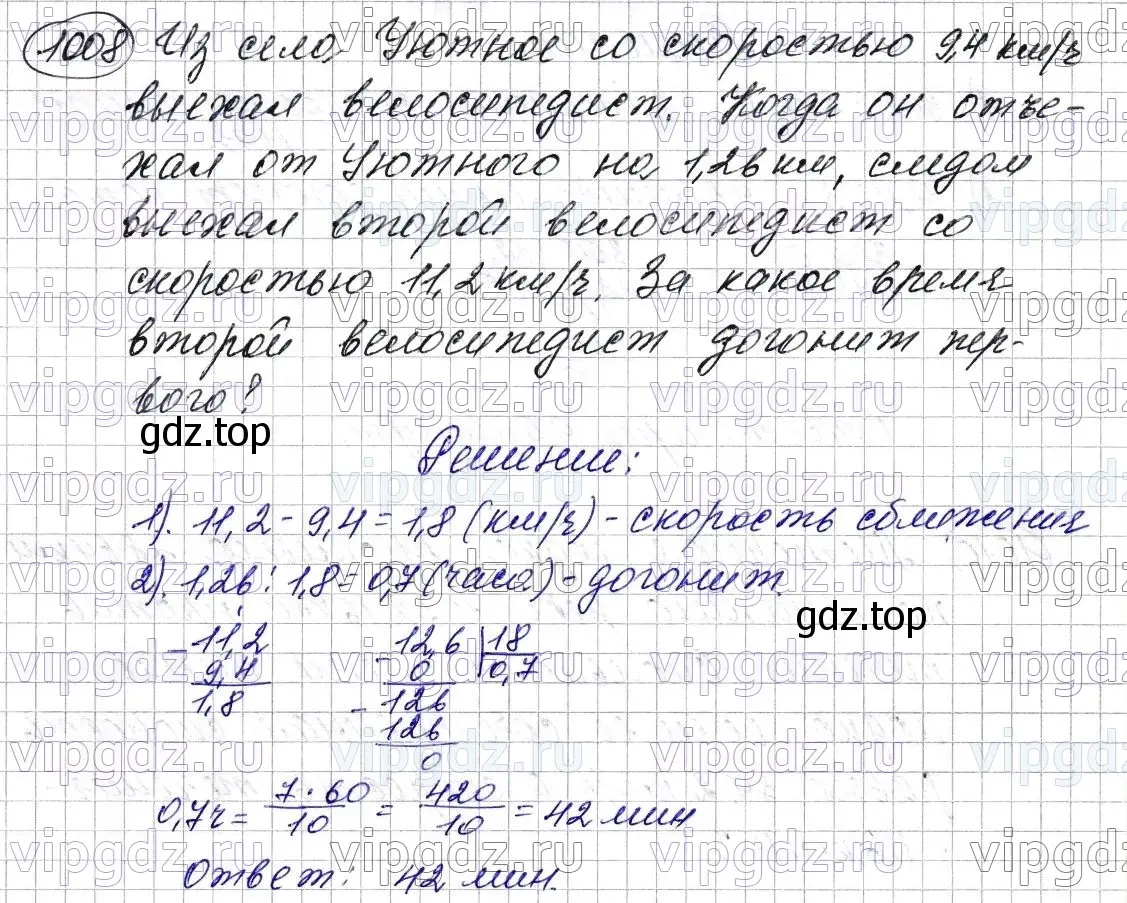 1008 Из села Уютное со скоростью 9,4 км/ч
выехал велосипедист. Когда он отъе-
хал от Уютного на 1,26 км, следом
выехал второй велосипедист со
скоростью 11,2 км/ч. За какое время
второй велосипедист догонит пер-
вого?
gdz.top
Решение:
1). 11,2 - 9,4 = 1,8 (км/ч) - скорость сближения
2). 1,26 : 1,8 = 0,7 (часа) - догонит.
gdz.top
- 11,2 - 12,6 18
9,4 0 0,7
1,8 - 126
126
0
0,7ч = 7·60/10 = 420/10 = 42 мин
Ответ: 42 мин.
vipgdz.ru